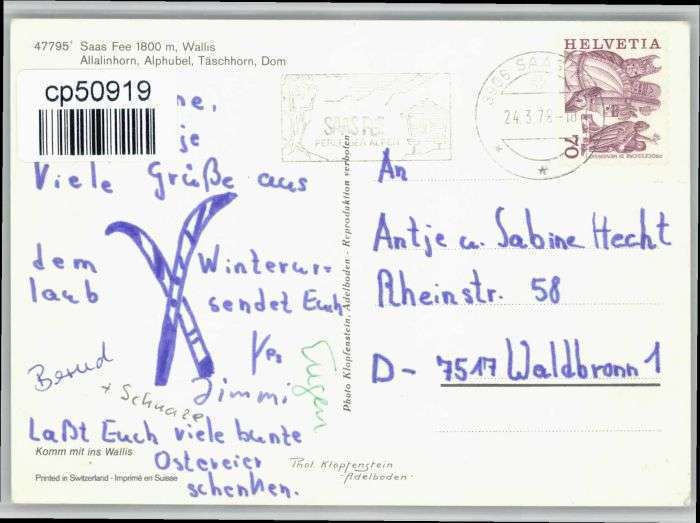 47795' Saas Fee 1800 m, Wallis
Allalinhorn, Alphubel, Täschhorn, Dom
cp50919
ne,
je
Viele Grüße aus
dem Winterur-
laub sendet Euch
Jimmi
Bernd
+ Schnaze
Eugen
Laßt Euch viele bunte
Ostereier
schenken.
Komm mit ins Wallis
Printed in Switzerland - Imprimé en Suisse
Phot. Klopfenstein
Adelboden
Photo Klopfenstein, Adelboden - Reproduktion verboten
SAAS FEE
24.3.78-18
HELVETIA
70
An
Antje u. Sabine Hecht
Rheinstr. 58
D- 7517 Waldbronn 1